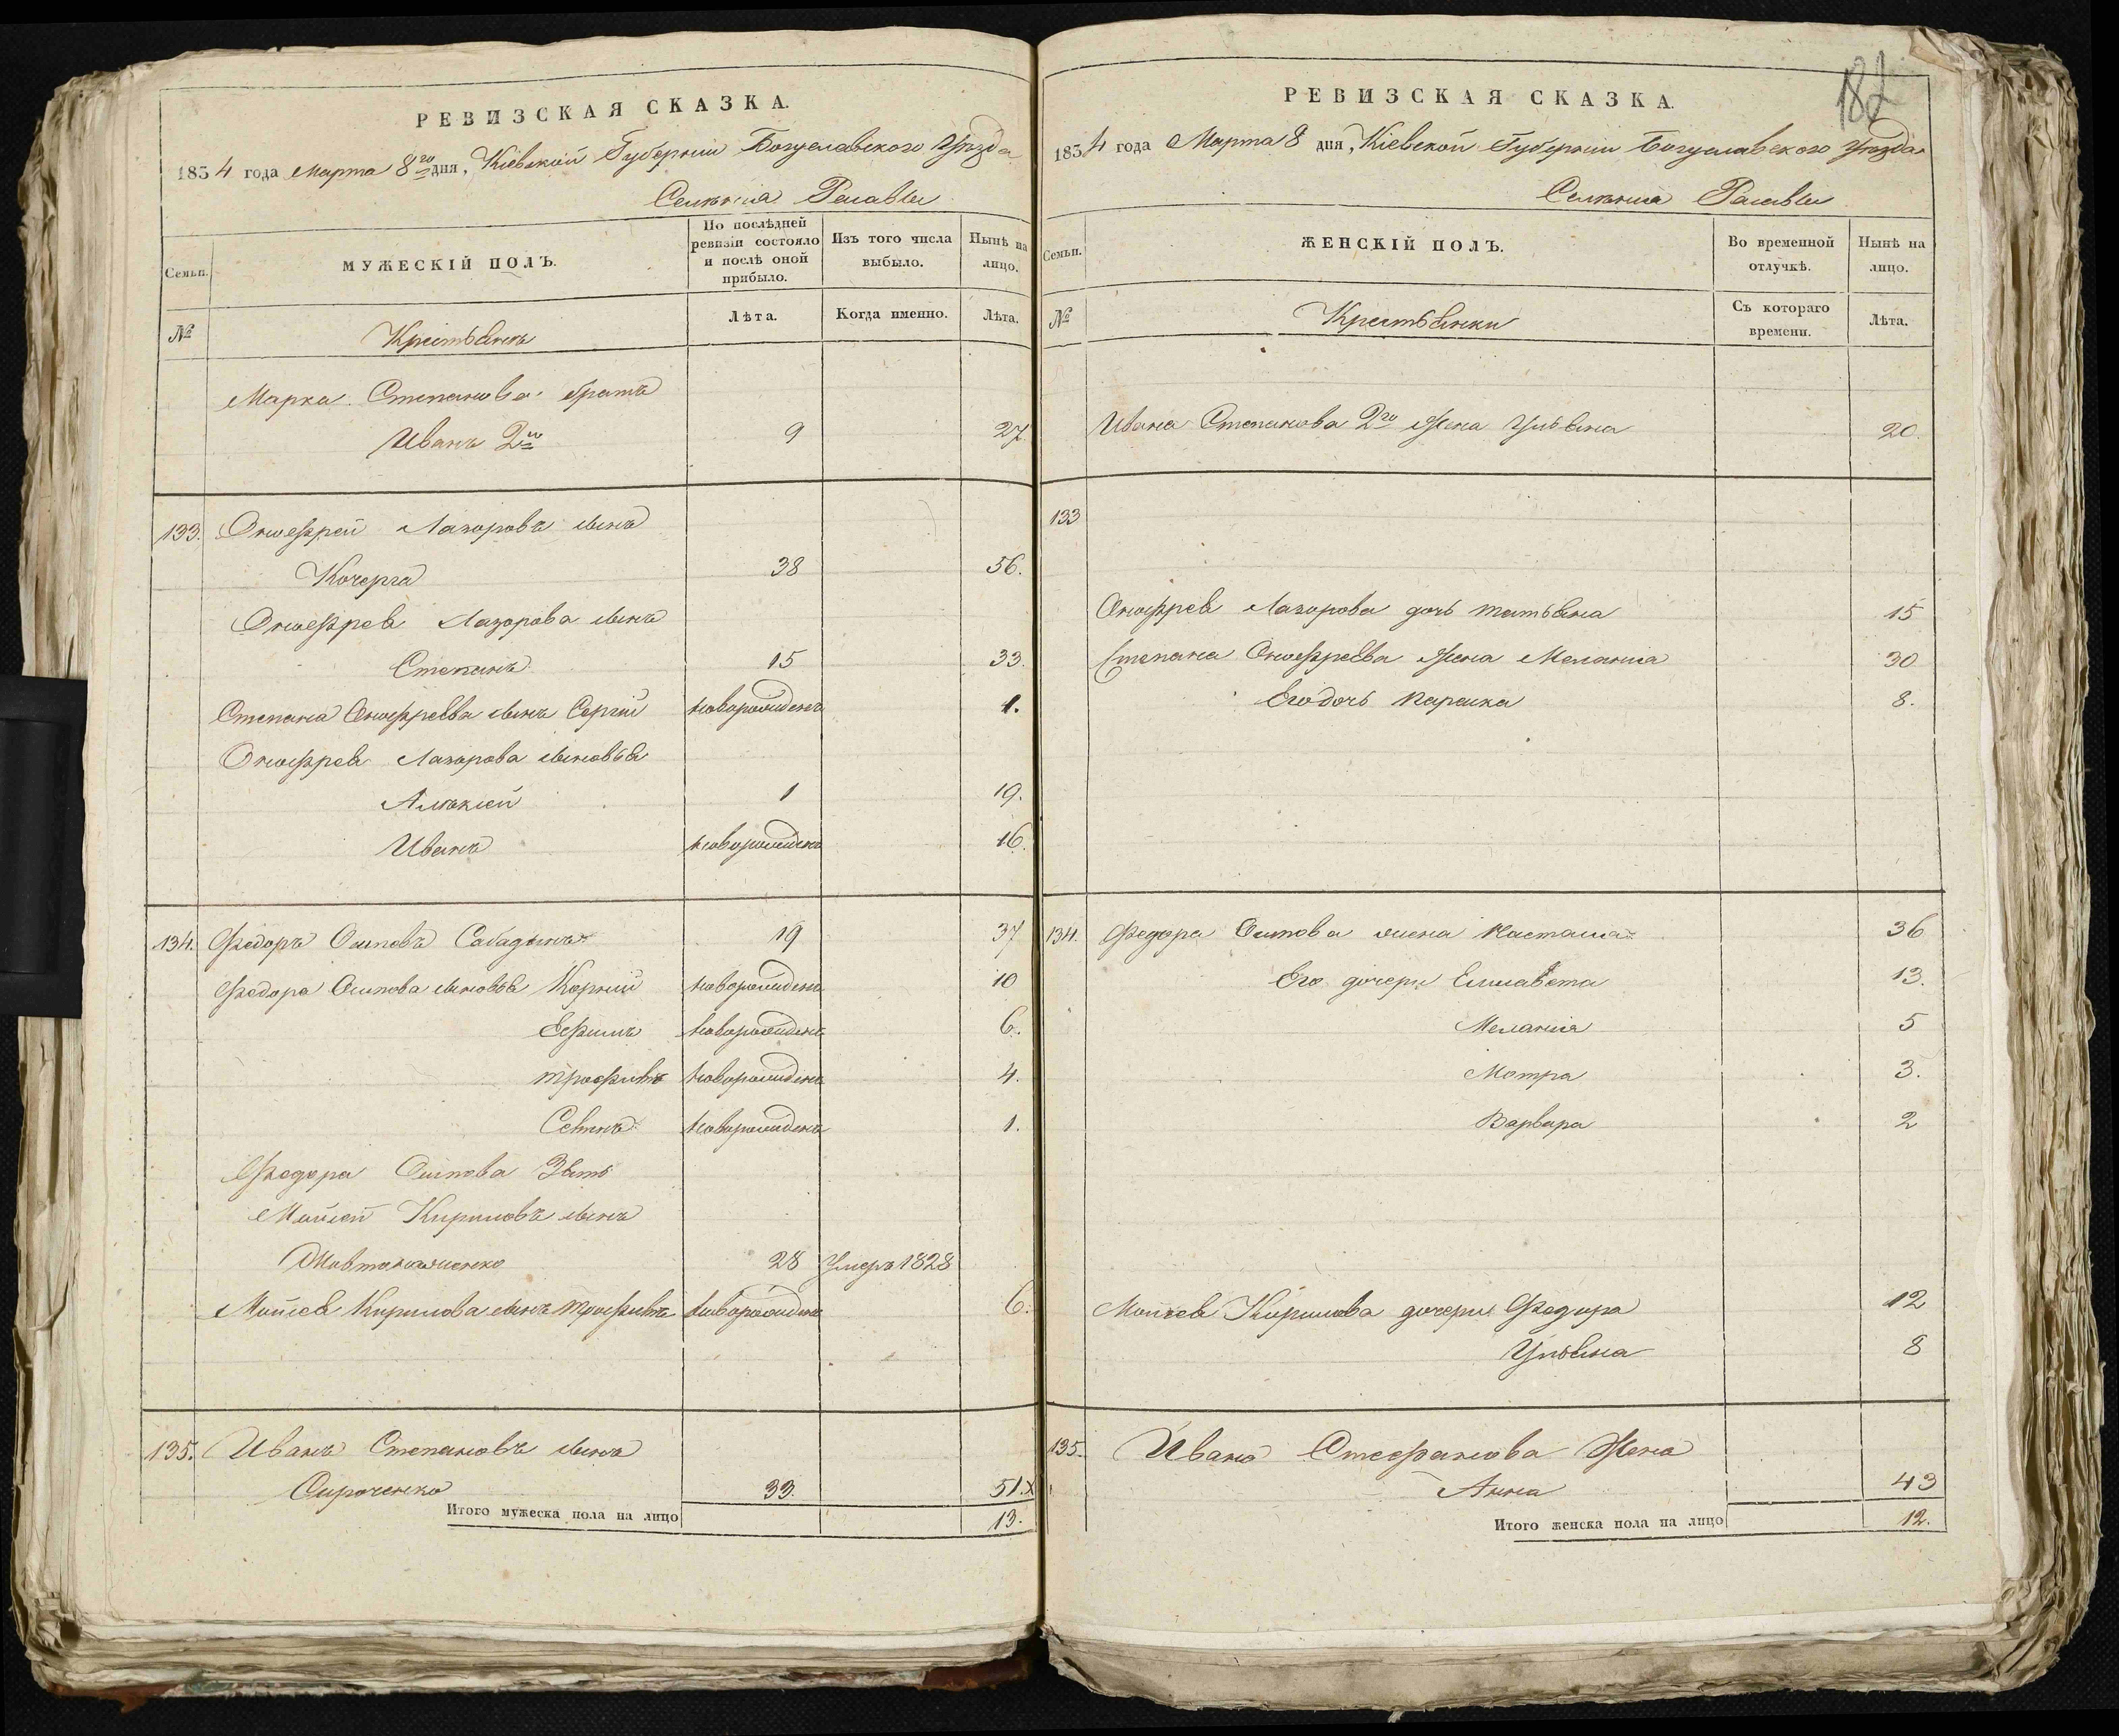 РЕВИЗСКАЯ СКАЗКА.
1854 года Марта 8го дня, Кіевской Губерніи Богуславского Уѣзда
Селенія
Семьи.
МУЖЕСКІЙ ПОЛЪ.
По послѣдней ревизіи состояло и послѣ оной прибыло.
Изъ того числа выбыло.
Нынѣ на лицо.
№
Крестьянъ
Лѣта.
Когда именно.
Лѣта.
Марка Степанова братъ
Иванъ 2й 9 27
133. Онофрей Лазоровъ сынъ
Кочерга 38 56.
Онофрея Лазорова сынъ
Степанъ 15 33.
Степана Онофреева сынъ Сергій новорожденъ 1.
Онофрея Лазорова сыновья
Алексей 1 19.
Иванъ новорожденъ 16.
134. Федоръ Осиповъ Сабадынъ 19 37
Федора Осипова сыновья Корній новорожденъ 10
Ефимъ новорожденъ 6.
Трофимъ новорожденъ 4.
новорожденъ 1.
Федора Осипова Зять
Мойсей Кириловъ сынъ
28 Умеръ 1828
Мойсея Кирилова сынъ Трофимъ новорожденъ 6.
135. Иванъ Степановъ сынъ
Сироченко 33. 51.х
Итого мужеска пола на лицо 13.
182
РЕВИЗСКАЯ СКАЗКА.
1854 года Марта 8 дня, Кіевской Губерніи Богуславского Уѣзда
Селенія
Семьи.
ЖЕНСКІЙ ПОЛЪ.
Во временной отлучкѣ.
Нынѣ на лицо.
№
Крестьянки
Съ котораго времени.
Лѣта.
Ивана Степанова 2го Жена Ульяна 20.
133
Онофрея Лазорова дочь Татьяна 15
Степана Онофреева Жена Меланія 30
Его дочь Параска 8.
134. Федора Осипова жена Настасія 36
Его дочери Елисавета 13.
Меланія 5
Мотра 3.
Варвара 2
Мойсея Кирилова дочери Федора 12
Ульяна 8
135. Ивана Стефанова Жена
Анна 43
Итого женска пола на лицо 12.